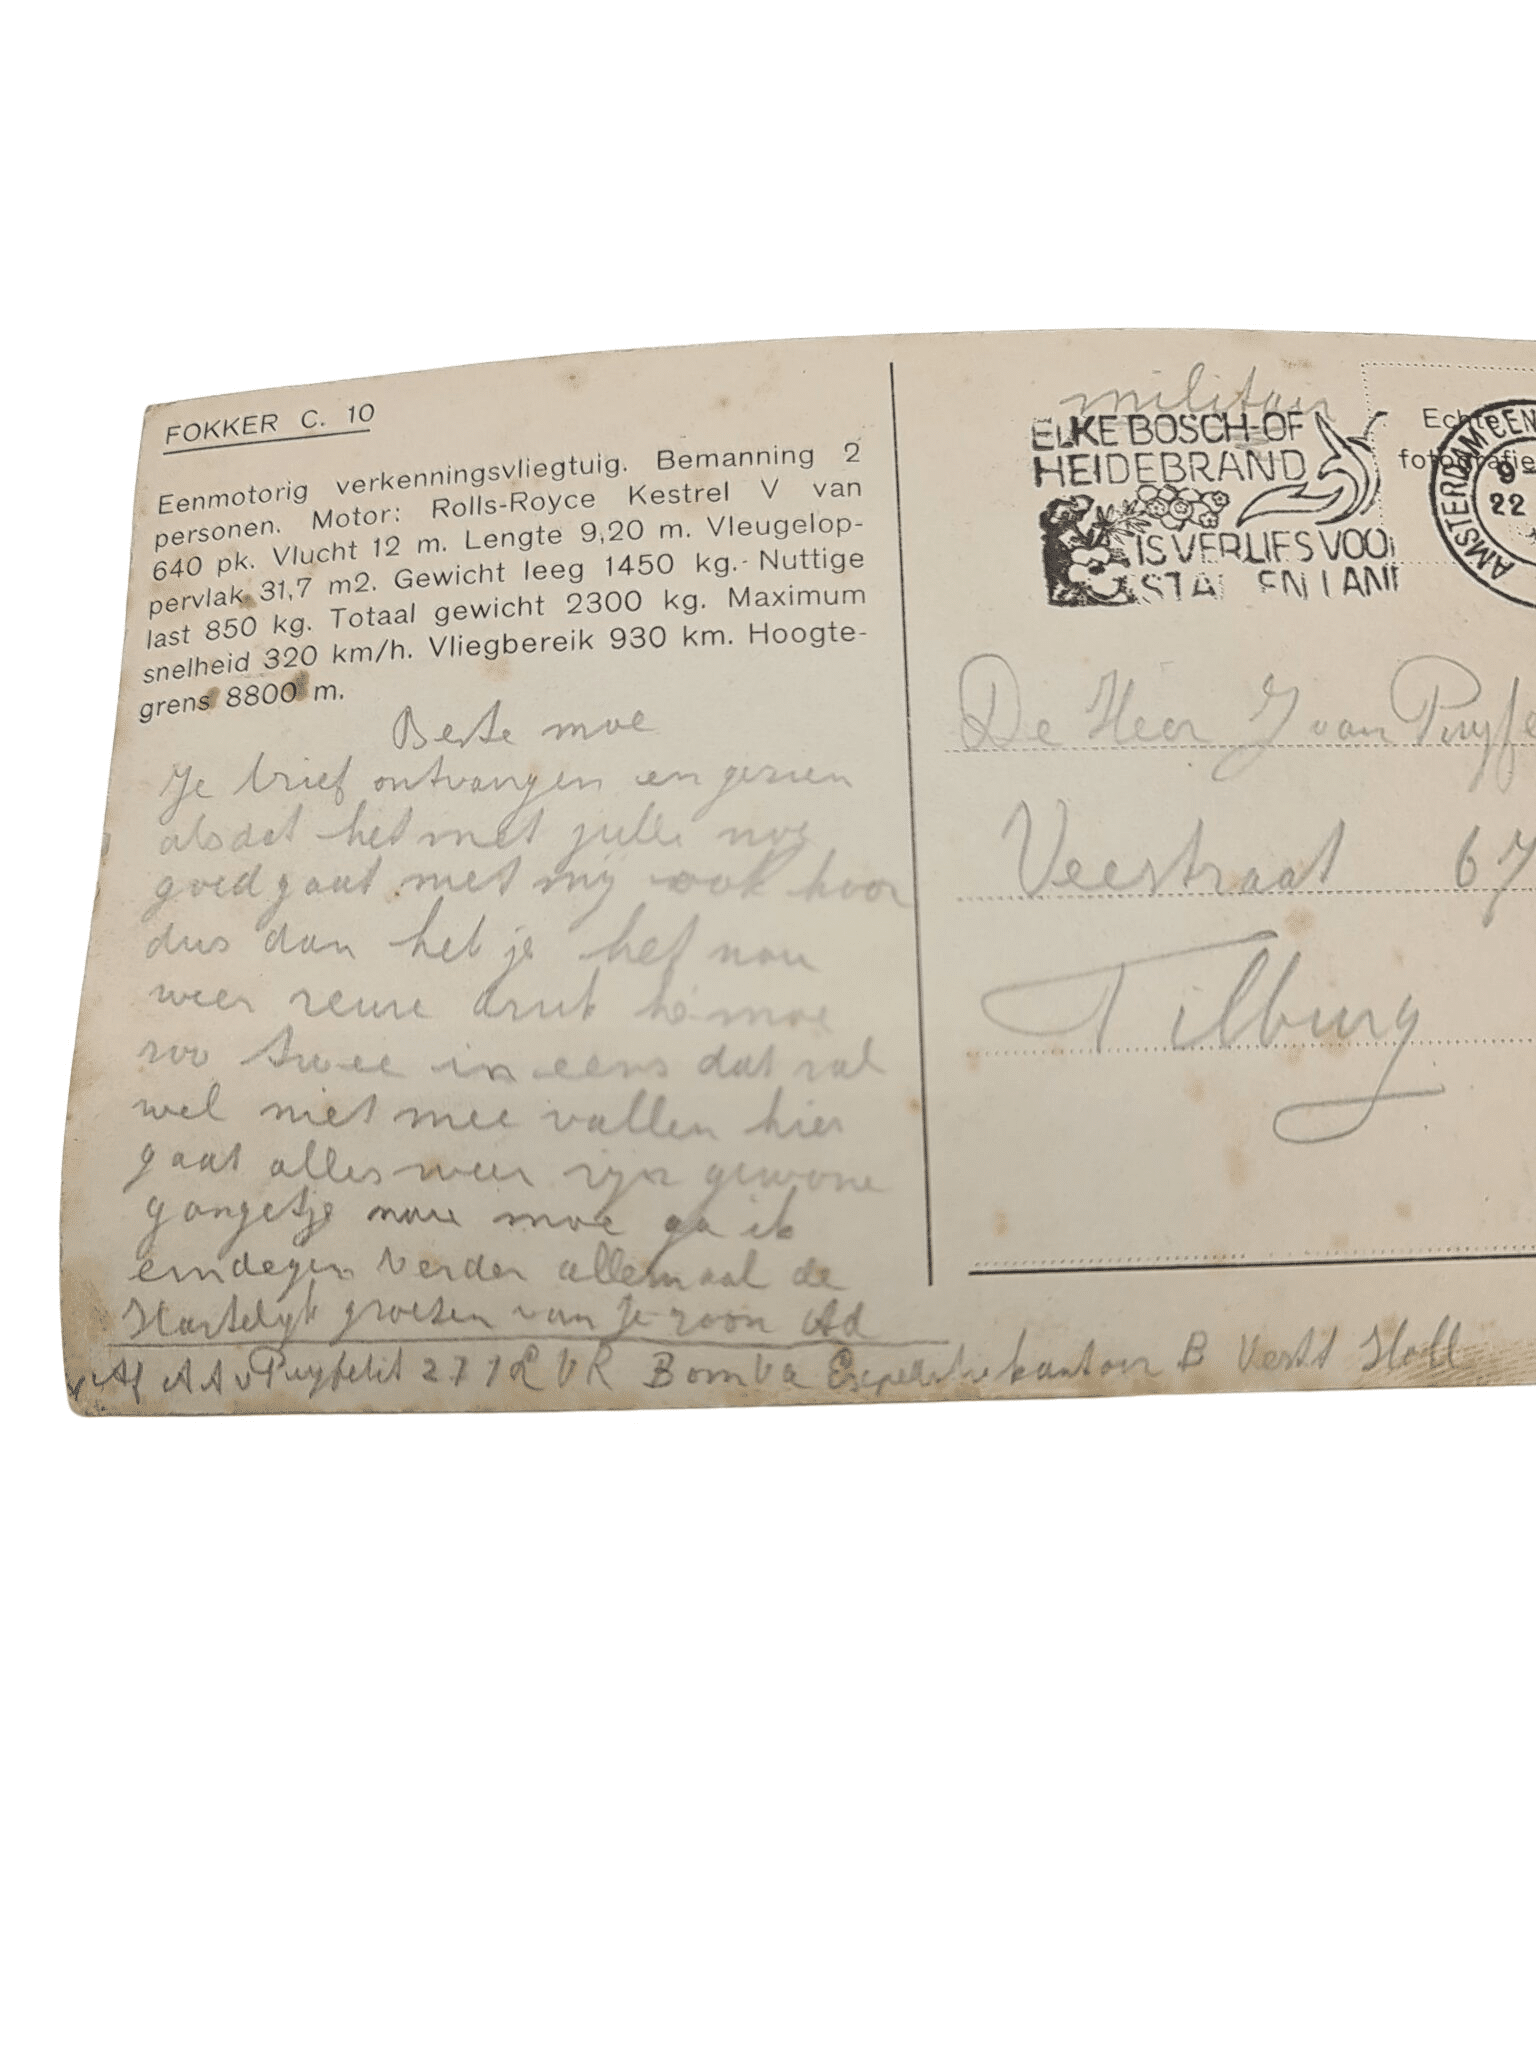 FOKKER C. 10
Eenmotorig verkenningsvliegtuig. Bemanning 2
personen. Motor: Rolls-Royce Kestrel V van
640 pk. Vlucht 12 m. Lengte 9,20 m. Vleugelop-
pervlak 31,7 m2. Gewicht leeg 1450 kg. Nuttige
last 850 kg. Totaal gewicht 2300 kg. Maximum
snelheid 320 km/h. Vliegbereik 930 km. Hoogte-
grens 8800 m.
Beste moe
Je brief ontvangen en gezien
als dat het met julle nog
goed gaat met mij ook hoor
dus dan heb je het nou
weer zeure druk hè moe
zoo twee in eens dat zal
wel niet mee vallen hier
gaat alles weer zijn gewone
gangetje nou moe ga ik
eindegen verder allemaal de
Hartelijk groeten van je zoon Ad
Af A A v Puyfelit 27 1 VR Bom Va kantoor B Vest Holl
militair
ELKE BOSCH-OF
HEIDEBRAND
IS VERLIES VOOR
STAD EN LAND
Echte
fotografie
AMSTERDAM CEN
9
22
De Heer J van Puyfe
Veestraat 67
Tilburg